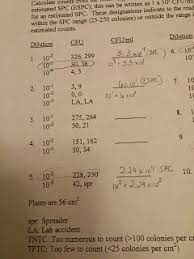 estimated SPC (ESPC), this can be written as 1 x 10² CFU/ml
for an estimated SPC. These designations indicate to the read
within the SPC range (25-250 colonies) or outside the range
estimated counts.
Dilution CFU CFU/ml Dilution
1. 10⁻² 326, 299 6.
10⁻³ 30, 36
1. 10⁻¹ 3, 9 7.
10⁻² 0, 0
10⁻³ LA, LA
3. 10⁻¹ 275, 264 8.
10⁻² 50, 21
4. 10⁻² 151, 162 9.
10⁻³ 50, 34
5. 10⁻² 228, 230 2.29 x10⁴ SPC 10
10⁻³ 42, spr
Plates are 56 cm²
spr: Spreader
LA: Lab accident
TNTC: Too numerous to count (>100 colonies per c
TFTC: Too few to count (<25 colonies per cm²)